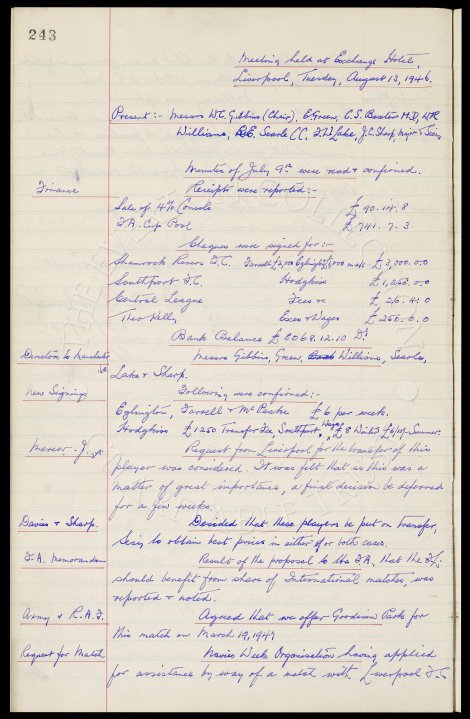 243
Meeting held at Exchange Hotel,
Liverpool, Tuesday, August 13, 1946.
Present :- Messrs W.C. Gibbins (Chair), E. Green, C.S. Baxter M.D, W.R.
Williams, R.E. Searle C.C. T.C. Sharp, Mgr & Secy
Minutes of July 9th were read & confirmed.
Finance Receipts were reported :-
Sale of 4% Consols £ 90. 14. 8
F.A. Cup Pool £ 741. 7. 3
Cheques were signed for :-
Shamrock Rovers F.C. Farrell £ Eglington £ £ 3,000. 0. 0
Southport F.C. Hodgkiss £ 1,250. 0. 0
Central League Fees &c £ 26. 4. 0
Theo Kelly Exes & Wages £ 250. 0. 0
Bank Balance £ 8068. 12. 10 Dr
Directors to Manchester Messrs Gibbins, Green, Williams, Searle,
Lake & Sharp.
New Signings Following were confirmed :-
Eglington, Farrell & McPeake £6 per week.
Hodgkiss £1250 Transfer Fee, Southport, Wages £8 Winter £6/10/- Summer.
Mercer. J. Request from Liverpool for the transfer of this
player was considered. It was felt that as this was a
matter of great importance, a final decision be deferred
for a few weeks.
Davies & Sharp. Decided that these players be put on transfer,
Secy to obtain best prices in either or both cases.
F.A. Memorandum Result of the proposal to the F.A. that the F.L.
should benefit from share of International matches, was
reported & noted.
Army v R.A.F. Agreed that we offer Goodison Park for
this match on March 19, 1947
Request for Match Navies Week Organisation having applied
for assistance by way of a match with Liverpool F.C.